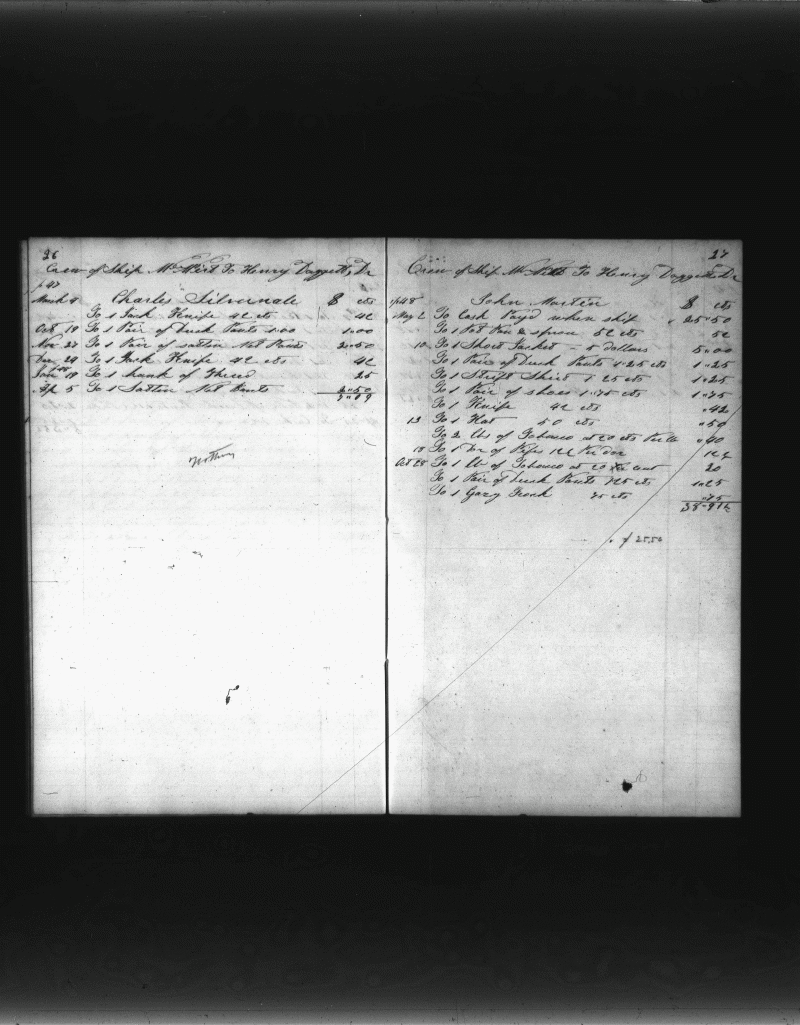 26
Crew of Ship To Henry Daggett, Dr
1847
March 4 Charles $ cts
To 1 Jack Knife 42 cts 42
Oct 19 To 1 Pair of Duck Pants 1.00 1"00
Nov 27 To 1 Pair of sattin Net Pants 2"50
Dec 29 To 1 Jack Knife 42 cts 42
Jan 18 To 1 hank of Thread 25
Ap 5 To 1 Sattin Net Pants 2"50
7"09
Nothing
27
Crew of Ship To Henry Daggett Dr
1848 John Martin $ cts
May 2 To Cash Payd when ship 25"50
To 1 Pot Pan & spoon 52 cts 52
10 To 1 Short Jacket - 5 dollars 5"00
To 1 Pair of Duck Pants 1.25 cts 1"25
To 1 Shirt 1.25 cts 1"25
To 1 Pair of shoes 1.75 cts 1"75
To 1 Knife 42 cts "42
13 To 1 Hat 50 cts "50
To 2 lbs of Tobacco at 20 cts "40
18 To 1 Dz of Pipes 12
Oct 28 To 1 lb of Tobacco at 20 cent 20
To 1 Pair of Duck Pants 125 cts 1"25
To 1 Frock 75 cts "75
38-91
25.50